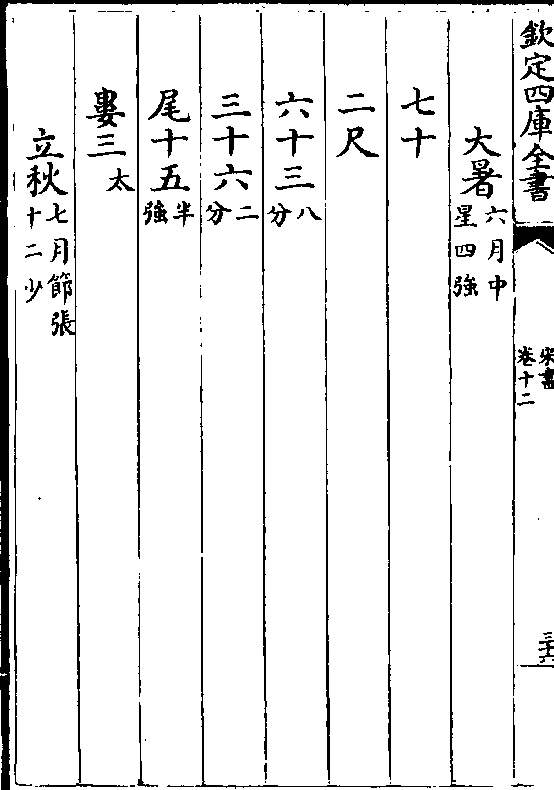 欽定四庫全書
宋書
卷十二
三十六
大暑六月中
星四強
七十
二尺
六十三八分
三十六二分
尾十五半強
婁三太
立秋七月節張
十二少